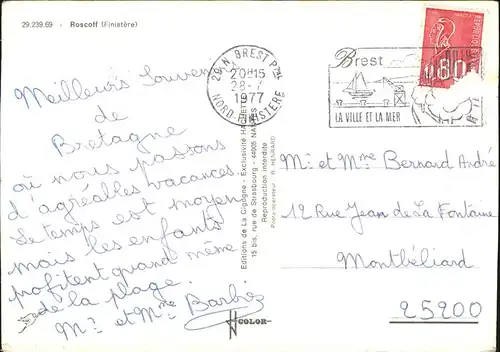 29.239.69 - Roscoff (Finistère)
Meilleurs Souvenirs
de
Bretagne
où nous passons
d'agréables vacances.
Le temps est moyen
mais les enfants
profitent quand même
de la plage.
Mr et Mme Barbiz
Editions de La Cigogne - Exclusivité HACHETTE
15 bis, rue de Strasbourg - 44005 NANTES
Reproduction interdite
COLOR
29 N. BREST Ppal
20H15
28-7
1977
NORD-FINISTÈRE
Brest
LA VILLE ET LA MER
0,80
Mr et Mme Bernard André
12 Rue Jean de La Fontaine
Montbéliard
25200